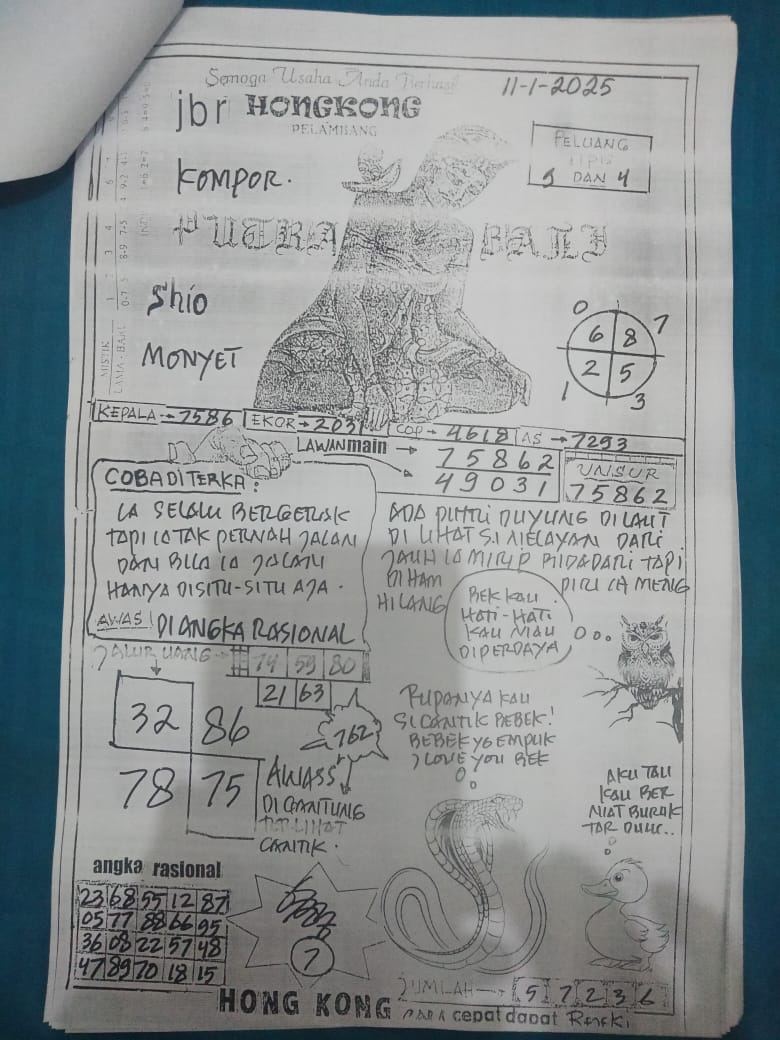 Semoga Usaha Anda Berhasil
11-1-2025
jbr HONGKONG
PELAMBANG
PELUANG
5 DAN 4
KOMPOR.
PUTRA BALI
Shio
MONYET
MISTIK
LAMA - BARU
0 7
6 8
2 5
1 3
KEPALA → 7586 EKOR → 2031 COP → 4618 AS → 7293
LAWAN main → 75862
49031
UNSUR
75862
COBA DITERKA :
IA SELALU BERGERAK
TAPI IA TAK PERNAH JALAN
DAN BILA IA JALAN
HANYA DISITU-SITU AJA.
AWAS! DI ANGKA RASIONAL
ADA PUTRI DUYUNG DI LAUT
DI LIHAT SI NELAYAN DARI
JAUH IA MIRIP BIDADARI TAPI
DIHAM PIRI IA MENG
HILANG
BEK KAU
HATI-HATI
KAU MAU
DIPERDAYA
JALUR UANG → 74 59 80
21 63
32 86
78 75
762
AWASS
DI GANTUNG
TERLIHAT
CANTIK.
RUPANYA KAU
SI CANTIK BEBEK!
BEBEK YG EMPUK
I LOVE YOU BEK
AKU TAU
KAU BER
NIAT BURUK
angka rasional
23 68 55 12 87
05 77 88 66 95
36 08 22 57 48
47 89 70 18 15
7
JUMLAH → 5 7 2 3 6
HONG KONG
cepat dapat Rezeki